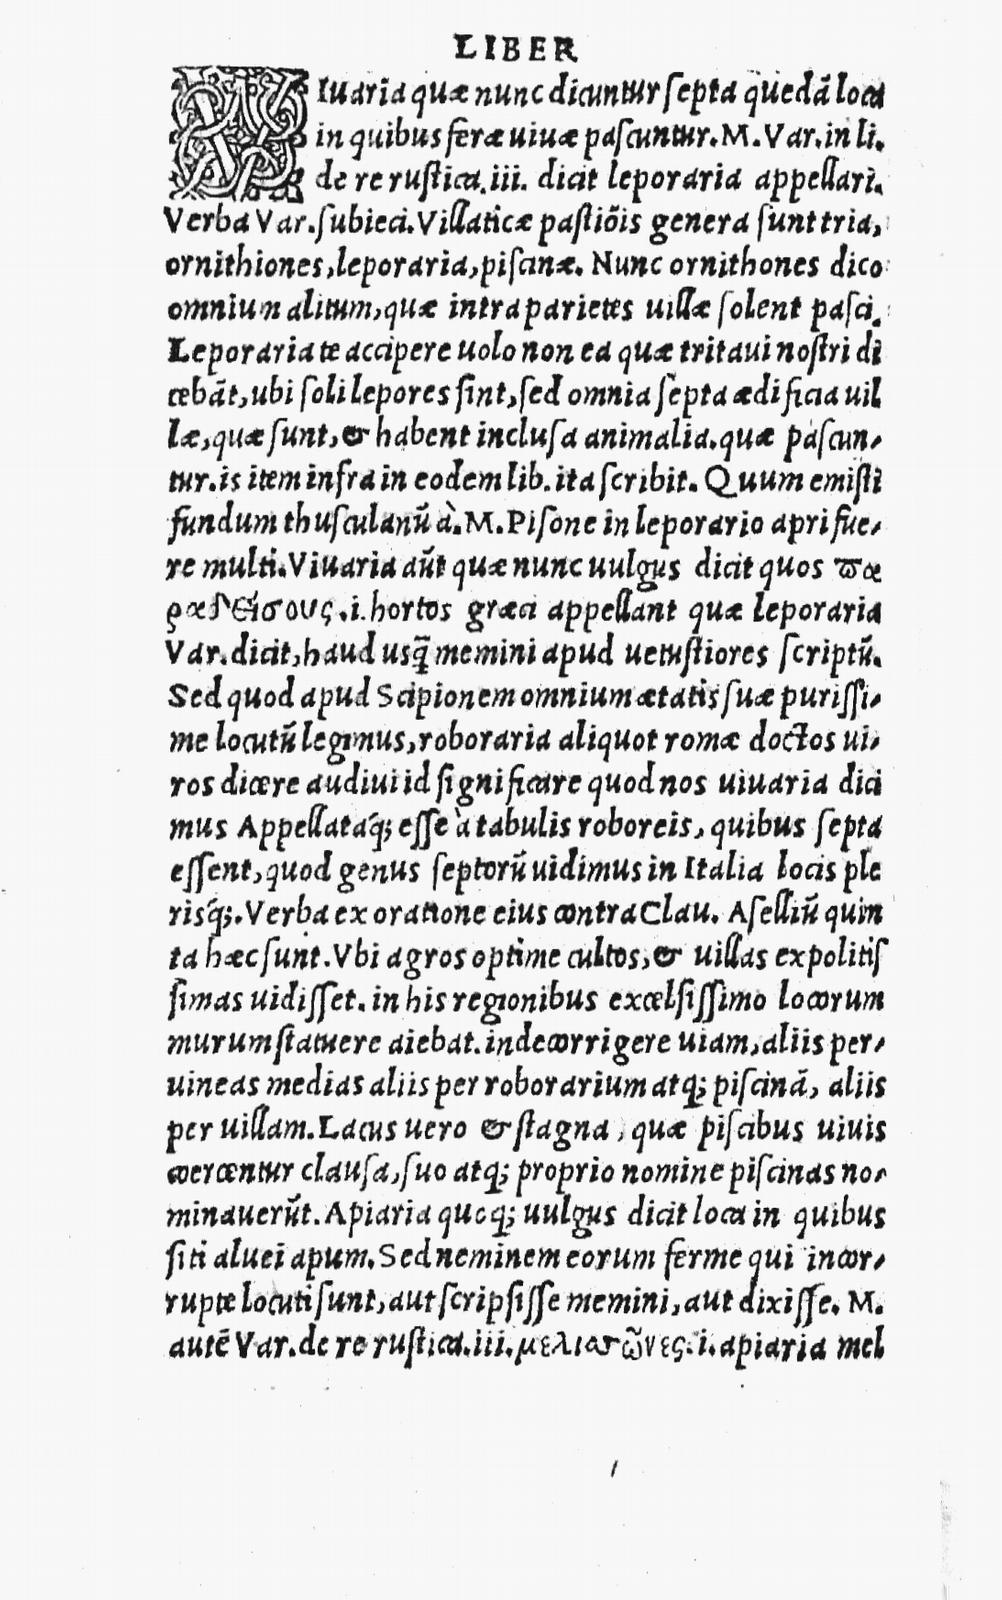 LIBER
VIuaria quæ nunc dicuntur ſepta quedā loca
in quibus feræ uiuæ paſcuntur. M. Var. in li.
de re ruſtica. iii. dicit leporaria appellari.
Verba Var. ſubieci. Villaticæ paſtiōis genera ſunt tria,
ornithiones, leporaria, piſcinæ. Nunc ornithones dico
omnium alitum, quæ intra parietes uillæ ſolent paſci.
Leporaria te accipere uolo non ea quæ tritaui noſtri di
cebāt, ubi ſoli lepores ſint, ſed omnia ſepta ædificia uil
læ, quæ ſunt, & habent incluſa animalia. quæ paſcun-
tur. is item infra in eodem lib. ita ſcribit. Quum emiſti
fundum thuſculanū à. M. Piſone in leporario apri fue-
re multi. Viuaria aūt quæ nunc uulgus dicit quos πα
ραδείσους. i. hortos græci appellant quæ leporaria
Var. dicit, haud usq̄ memini apud uetuſtiores ſcriptū.
Sed quod apud Scipionem omnium ætatis ſuæ puriſſi-
me locutū legimus, roboraria aliquot romæ doctos ui-
ros dicere audiui id ſignificare quod nos uiuaria dici
mus Appellataq́; eſſe à tabulis roboreis, quibus ſepta
eſſent, quod genus ſeptorū uidimus in Italia locis ple
risq́;. Verba ex oratione eius contra Clau. Aſelliū quin
ta hæc ſunt. Vbi agros optime cultos, & uillas expolitiſ
ſimas uidiſſet. in his regionibus excelſiſſimo locorum
murum ſtatuere aiebat. inde corrigere uiam, aliis per-
uineas medias aliis per roborarium atq; piſcinā, aliis
per uillam. Lacus uero & ſtagna, quæ piſcibus uiuis
coercentur clauſa, ſuo atq; proprio nomine piſcinas no-
minauerūt. Apiaria quoq; uulgus dicit loca in quibus
ſiti aluei apum. Sed neminem eorum ferme qui incor-
rupte locuti ſunt, aut ſcripſiſſe memini, aut dixiſſe. M.
autē Var. de re ruſtica. iii. μελισσῶνες. i. apiaria mel